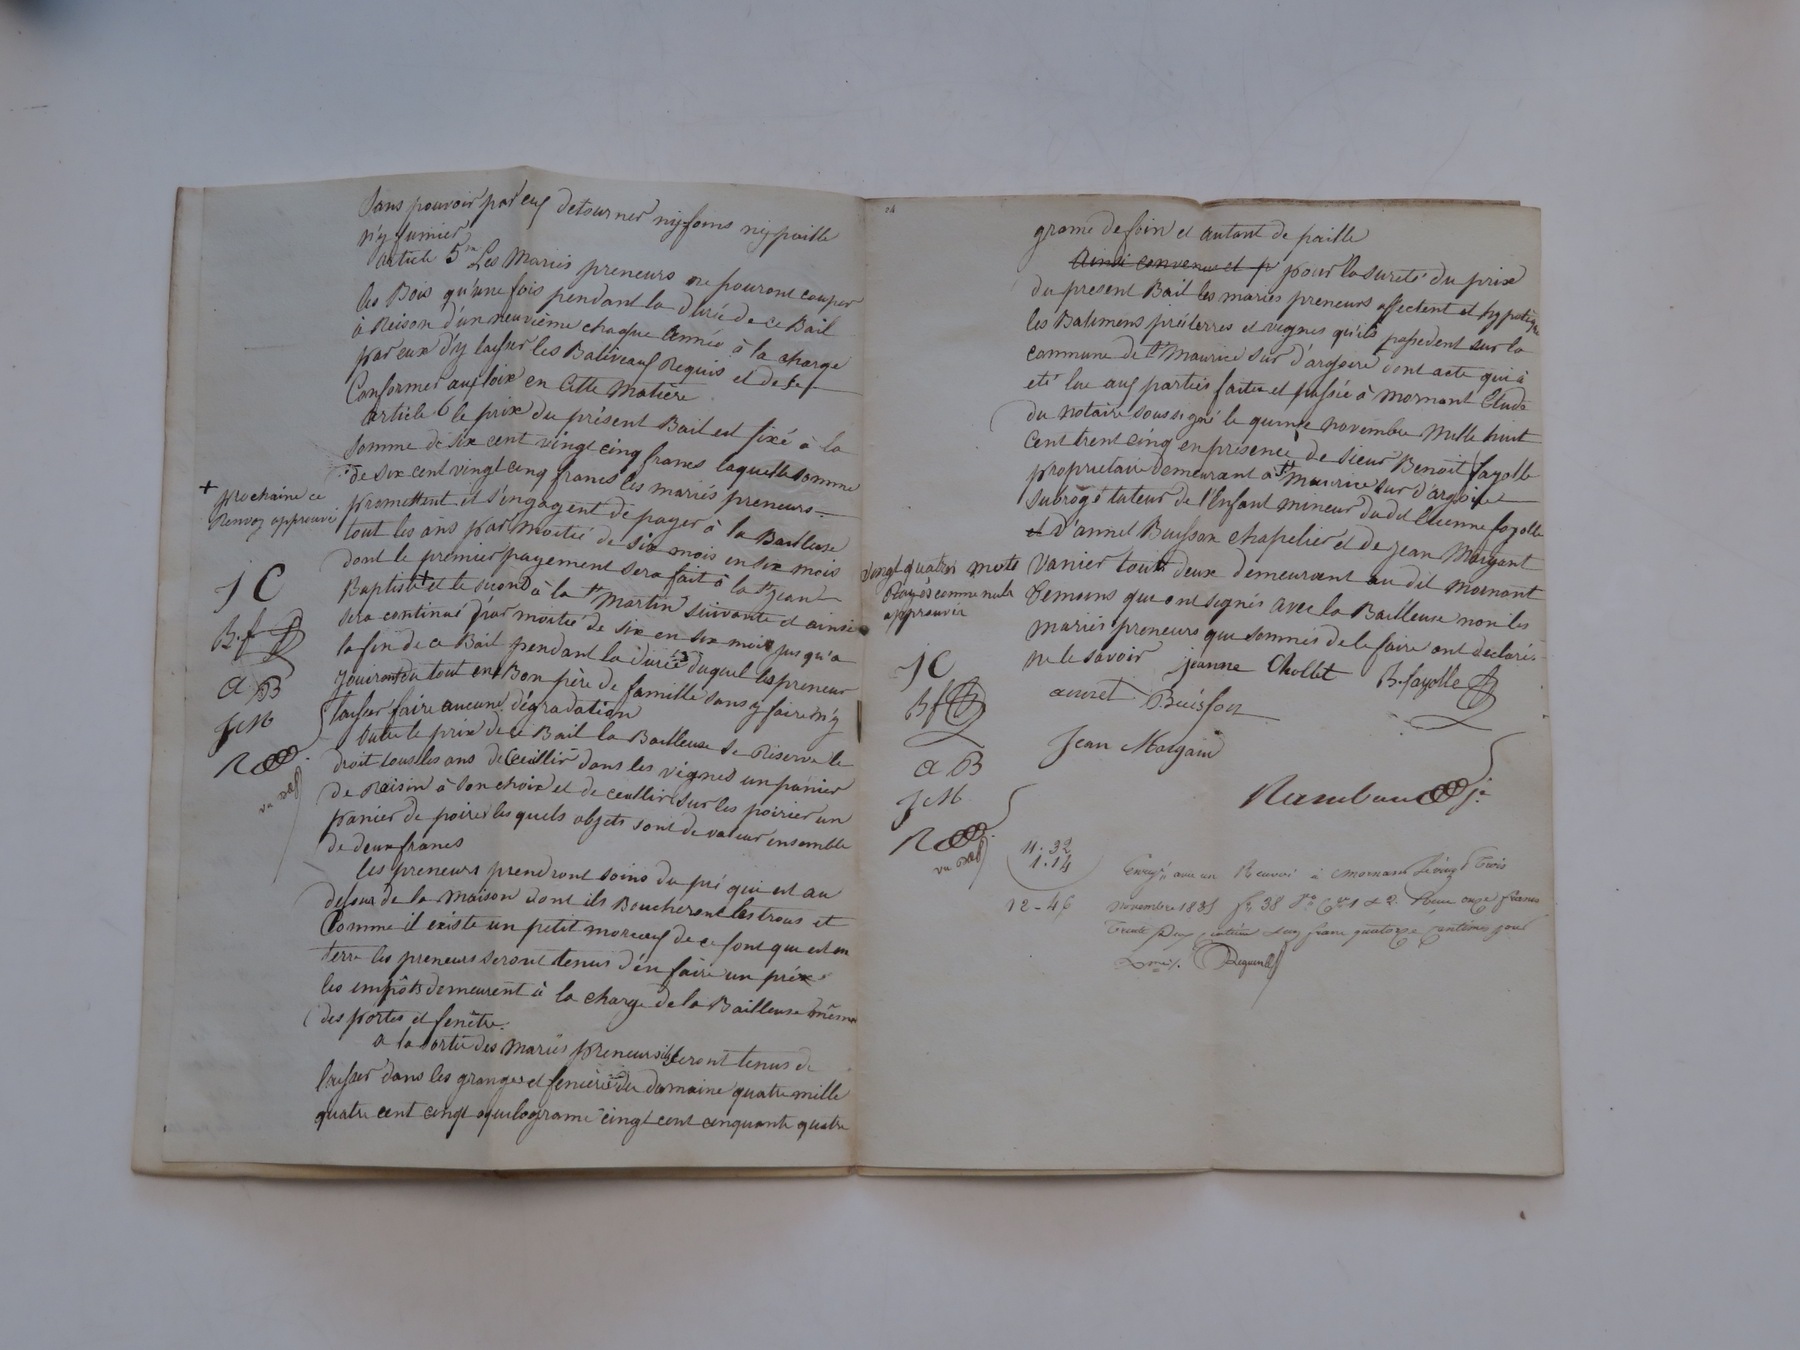 Sans pouvoir par eux detourner ny foins ny paille
n'y fumier
article 5me Les Mariés preneurs ne pouront couper
les Bois qu'une fois pendant la durée de ce Bail
à Reison d'un neuvième chaque année à la charge
par eux d'y laisser les Baliveaux Requis et de se
Conformer aux loix en Cette Matière
article 6 le prix du présent Bail est fixé à la
somme de six cent vingt cinq francs laquelle somme
de six cent vingt cinq francs les mariés preneurs
promettent et s'engagent de payer à la Bailleuse
tout les ans par moitié de six mois en six mois
dont le premier payement sera fait à la St Jean
Baptiste + et le second à la St Martin suivante et ainsi
sera continué par moitié de six en six mois jusqu'a
la fin de ce Bail pendant la durée duquel les preneur
jouiront du tout en Bon père de famille sans y faire n'y
laisser faire aucune dégradation
outre le prix de ce Bail la Bailleuse se Réserve le
droit tous les ans de Ceuillir dans les vignes un panier
de Raisin à son choix et de ceullir sur les poirier un
panier de poires lesquels objets sont de valeur ensemble
de deux francs
les preneurs prendront soins du pré qui est au
desous de la maison dont ils Boucheront les trous et
Comme il existe un petit morceux de ce font que est en
terre les preneurs seront tenus d'en faire un pré
les impôts demeurent à la charge de la Bailleuse même
des portes et fenêtre.
a la sortie des Mariés preneurs ils seront tenus de
laisser dans les granges et fenières du domaine quatre mille
quatre cent cingt quilograme cingt cent cinquante quatre
+ prochaine ce
Renvoy approuvé
J C
B. f
a B
J M
R
grame de foin et autant de paille
Ainsi convenu et pour la sureté du prix
du present Bail les mariés preneurs affectent et hypotèque
les Batimens pré terres et vignes qu'ils possedent sur la
commune de St Maurice sur d'argoire dont acte qui à
eté lue aux parties faite et passée à Mornant Etude
du notaire soussigné le quinze novembre Mille huit
Cent trent cinq en présence de sieur Benoit fayolle
proprietaire demeurant à St Maurice sur d'argoire
subrogé tuteur de l'Enfant mineur du dit Etienne fayolle
et d'annet Buisson chapelier et de Jean Margant
vanier tout deux demeurant au dit Mornant
temoins qui ont signés avec la Bailleuse non les
mariés preneurs qui sommés de le faire ont déclaré
ne le savoir
jeanne Chollet B. fayolle
annet Buisson
Jean Margand
Vingt quatre mots
Rayés comme nuls
approuvée
J C
B f
a B
J M
R
11. 32
1. 14
12 - 46
Enregé avec un Renvoi à Mornant le vingt trois
novembre 1835 fo 38 Ro Ces 1 et 2. Reçu onze francs
trente deux centimes et un franc quatorze centimes pour